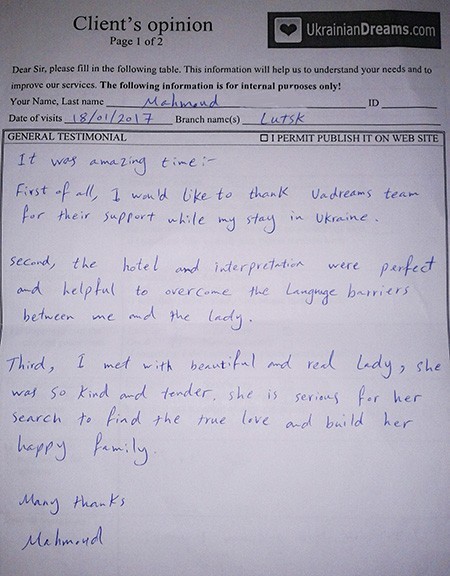 Client's opinion
Page 1 of 2
UkrainianDreams.com
Dear Sir, please fill in the following table. This information will help us to understand your needs and to
improve our services. The following information is for internal purposes only!
Your Name, Last name Mahmoud ID
Date of visits 18/01/2017 Branch name(s) Lutsk
GENERAL TESTIMONIAL ☐ I PERMIT PUBLISH IT ON WEB SITE
It was amazing time:-
First of all, I would like to thank Uadreams team
for their support while my stay in Ukraine.
Second, the hotel and interpretation were perfect
and helpful to overcome the Languge barriers
between me and the lady.
Third, I met with beautiful and real Lady, she
was so kind and tender. she is serious for her
search to find the true love and build her
happy family.
Many thanks
Mahmoud